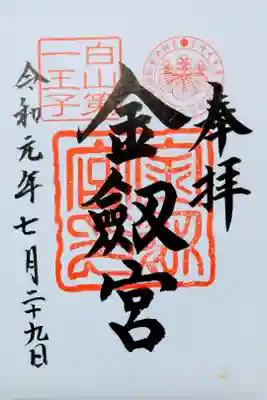 奉拝
金劔宮
白山第一王子
令和元年七月二十九日